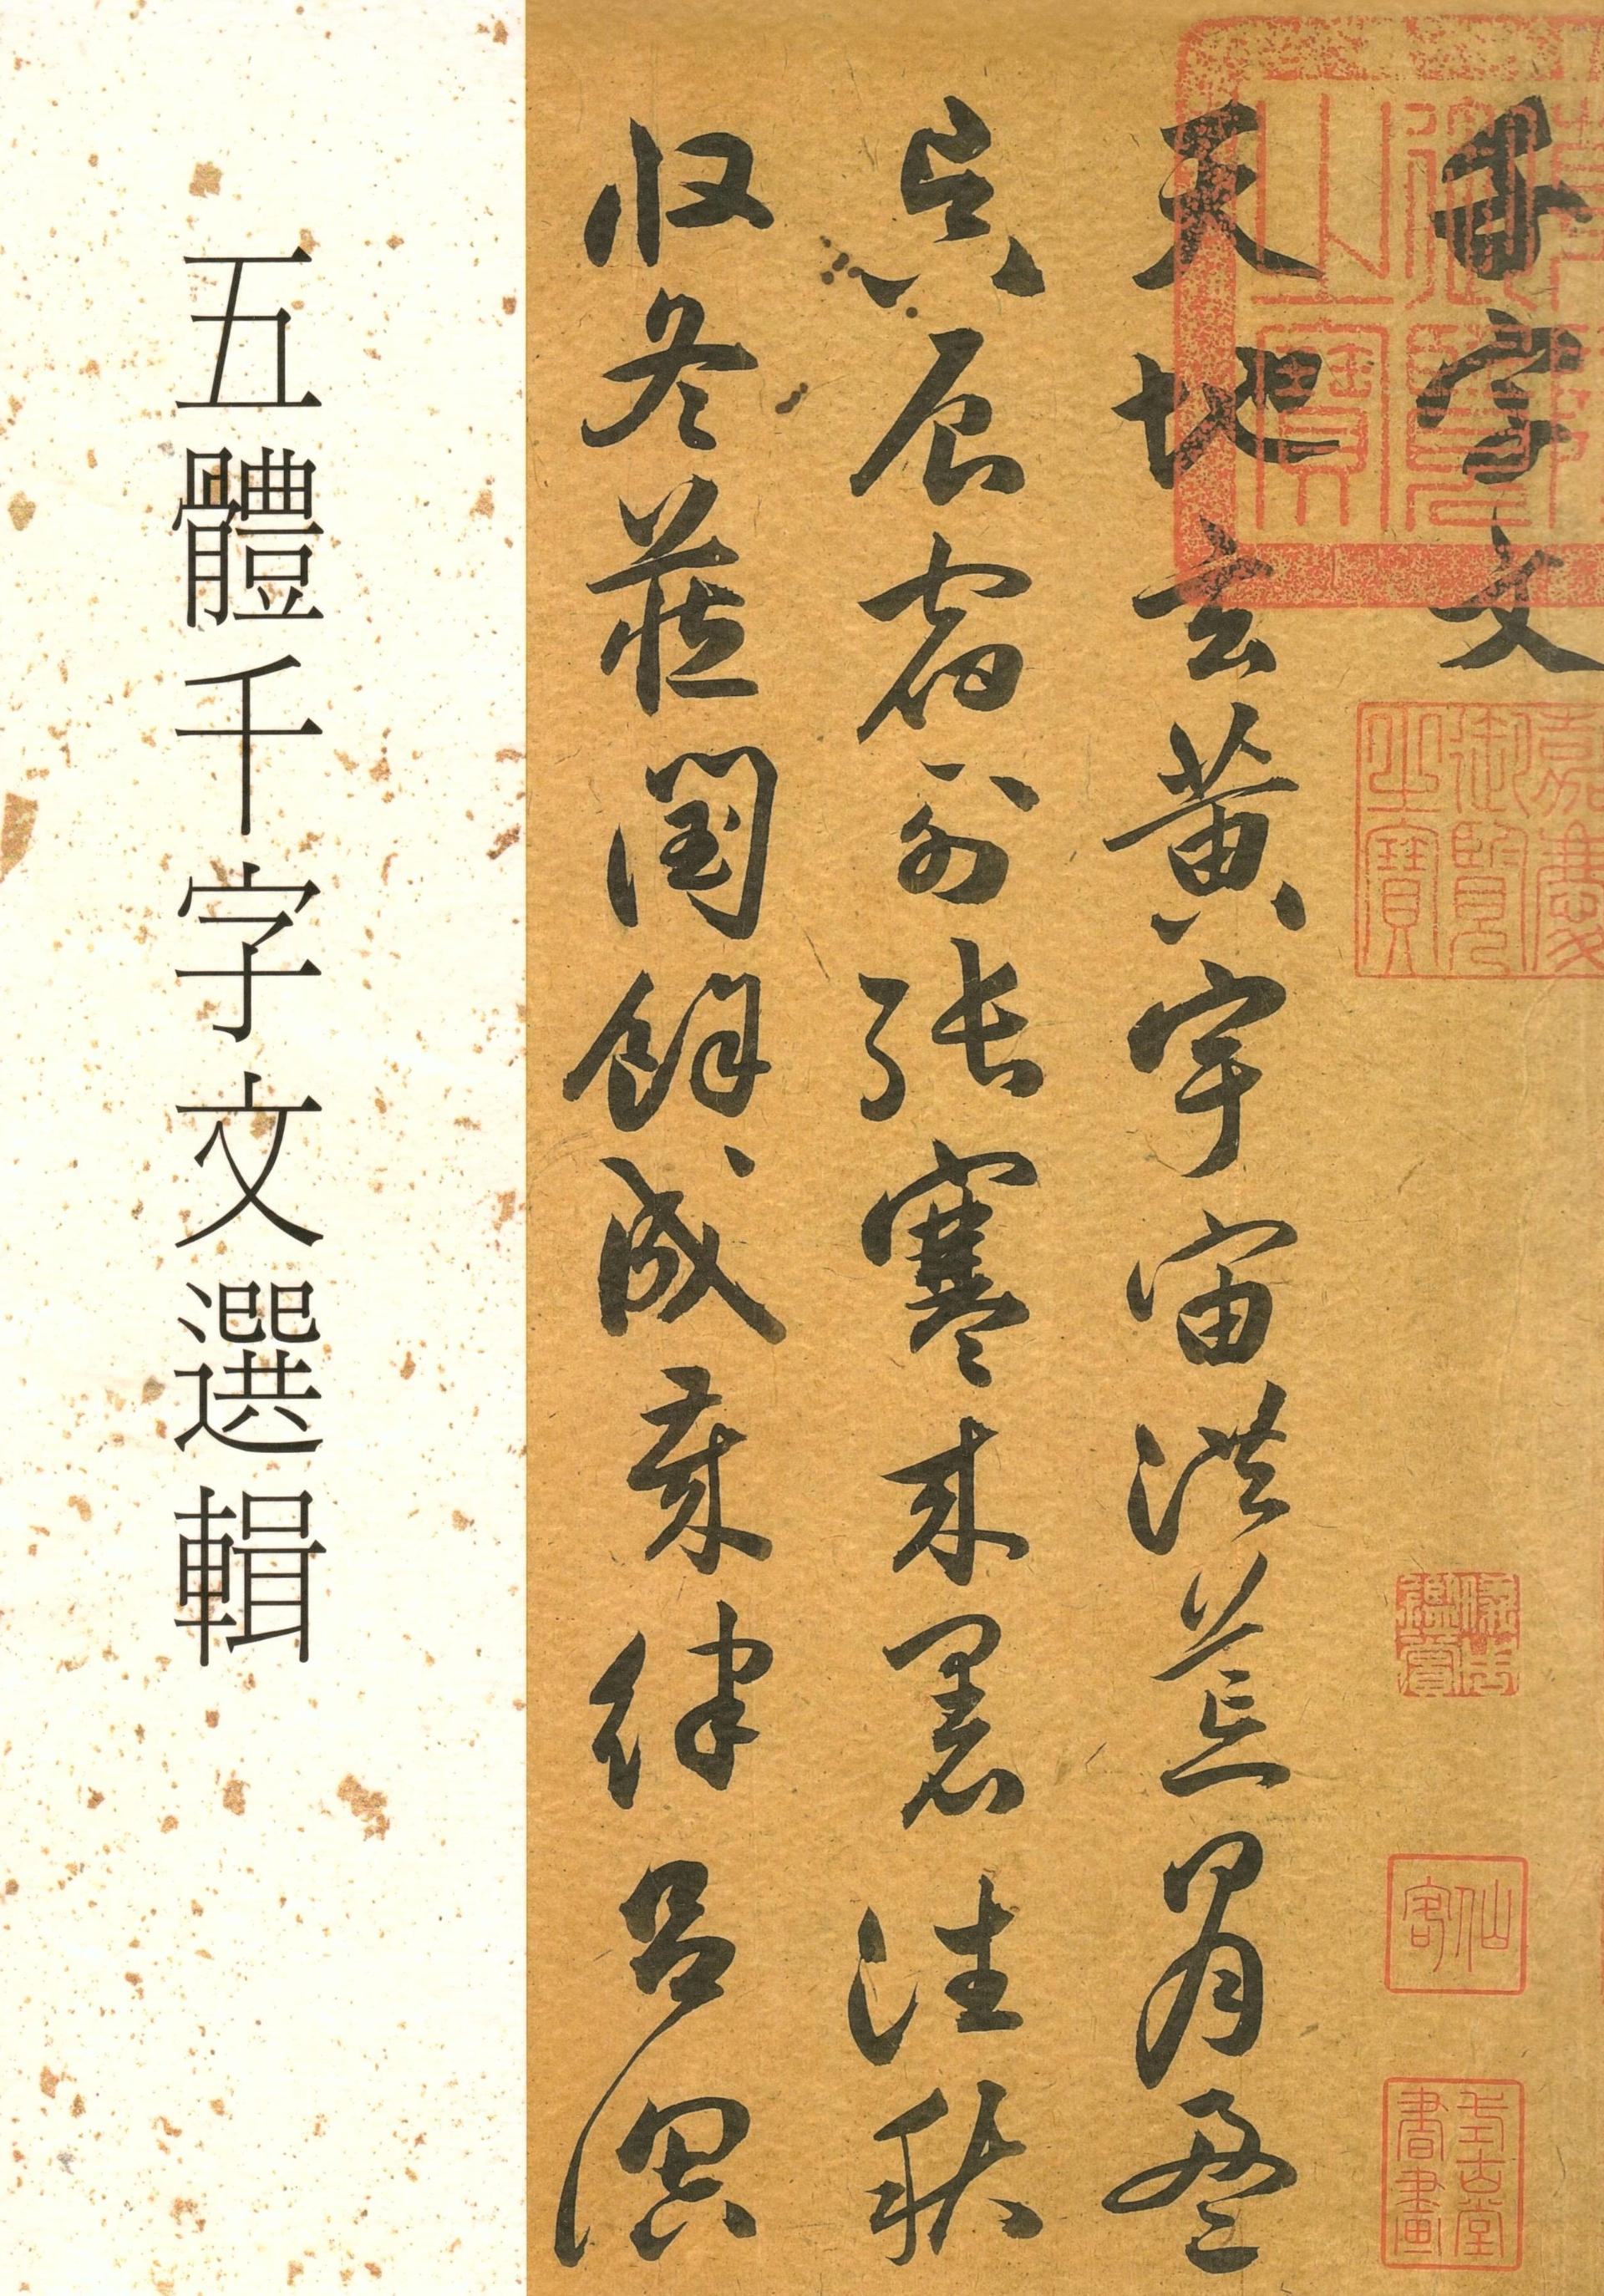 千字文
天地玄黃宇宙洪荒日月盈
昃辰宿列張寒来暑往秋
收冬藏閏餘成歲律呂調
五體千字文選輯
嘉慶御覽之寶
仙客